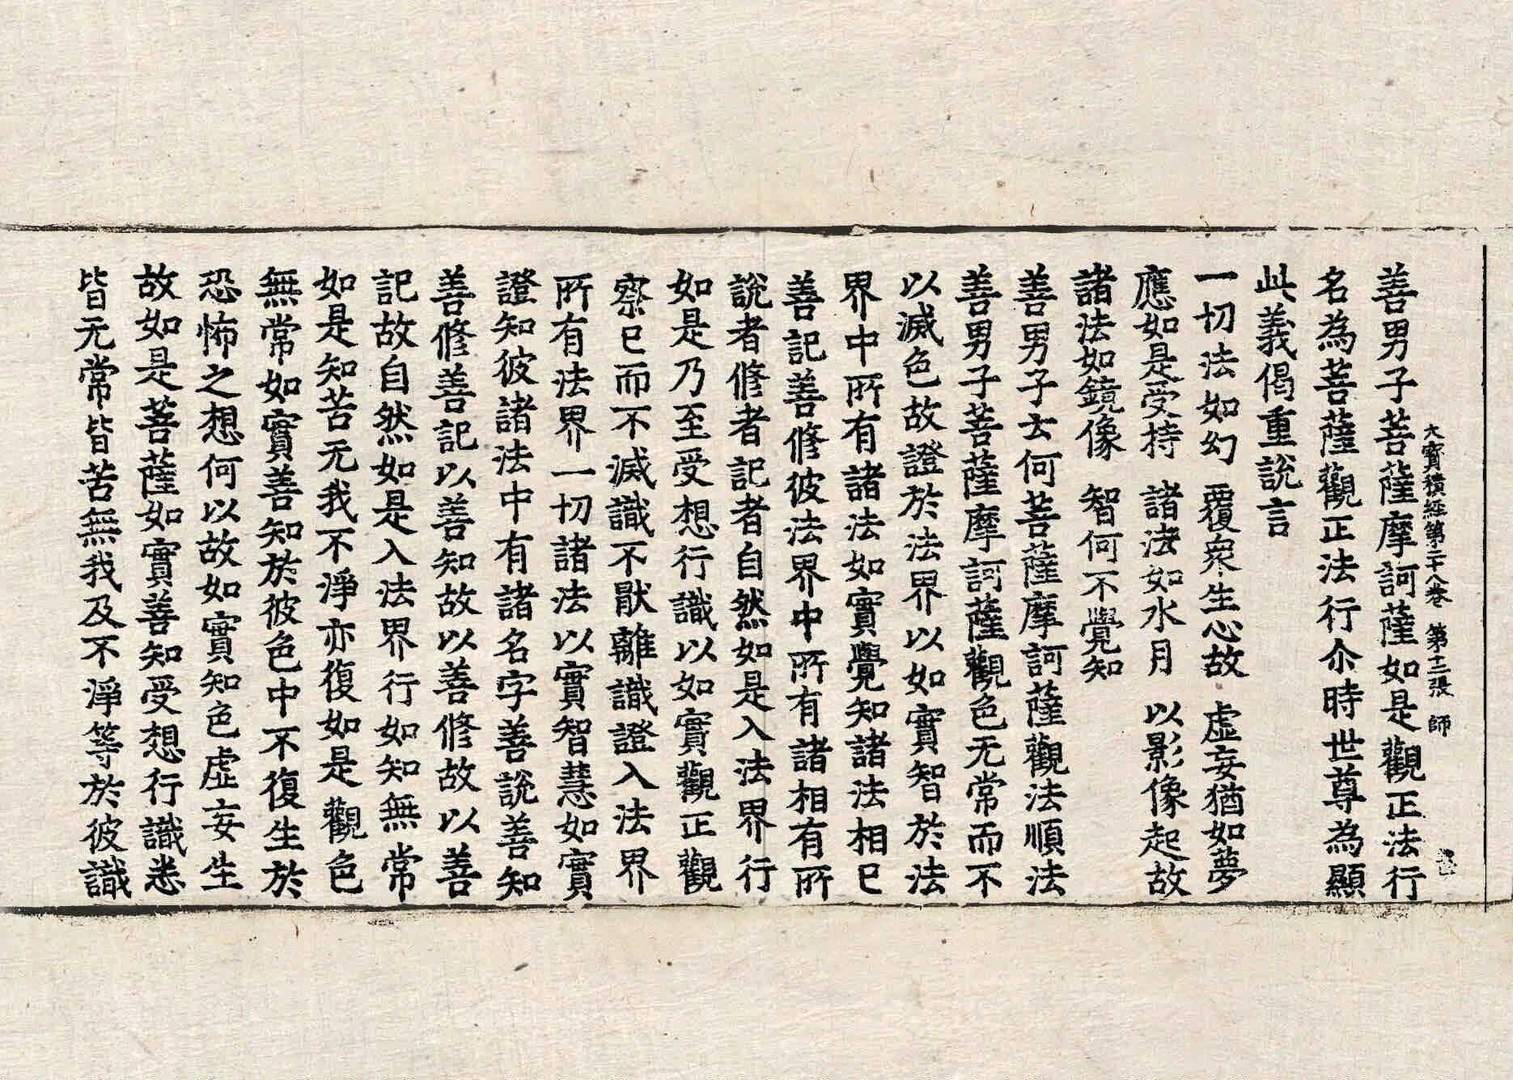 大寶積經第二十八卷　第十二張　師
善男子菩薩摩訶薩如是觀正法行
名為菩薩觀正法行尒時世尊為顯
此義偈重說言
一切法如幻　覆衆生心故　虛妄猶如夢
應如是受持　諸法如水月　以影像起故
諸法如鏡像　智何不覺知
善男子云何菩薩摩訶薩觀法順法
善男子菩薩摩訶薩觀色无常而不
以滅色故證於法界以如實智於法
界中所有諸法如實覺知諸法相已
善記善修彼法界中所有諸相有所
說者修者記者自然如是入法界行
如是乃至受想行識以如實觀正觀
察已而不滅識不猒離識證入法界
所有法界一切諸法以實智慧如實
證知彼諸法中有諸名字善說善知
善修善記以善知故以善修故以善
記故自然如是入法界行如知無常
如是知苦无我不淨亦復如是觀色
無常如實善知於彼色中不復生於
恐怖之想何以故如實知色虛妄生
故如是菩薩如實善知受想行識悉
皆无常皆苦無我及不淨等於彼識